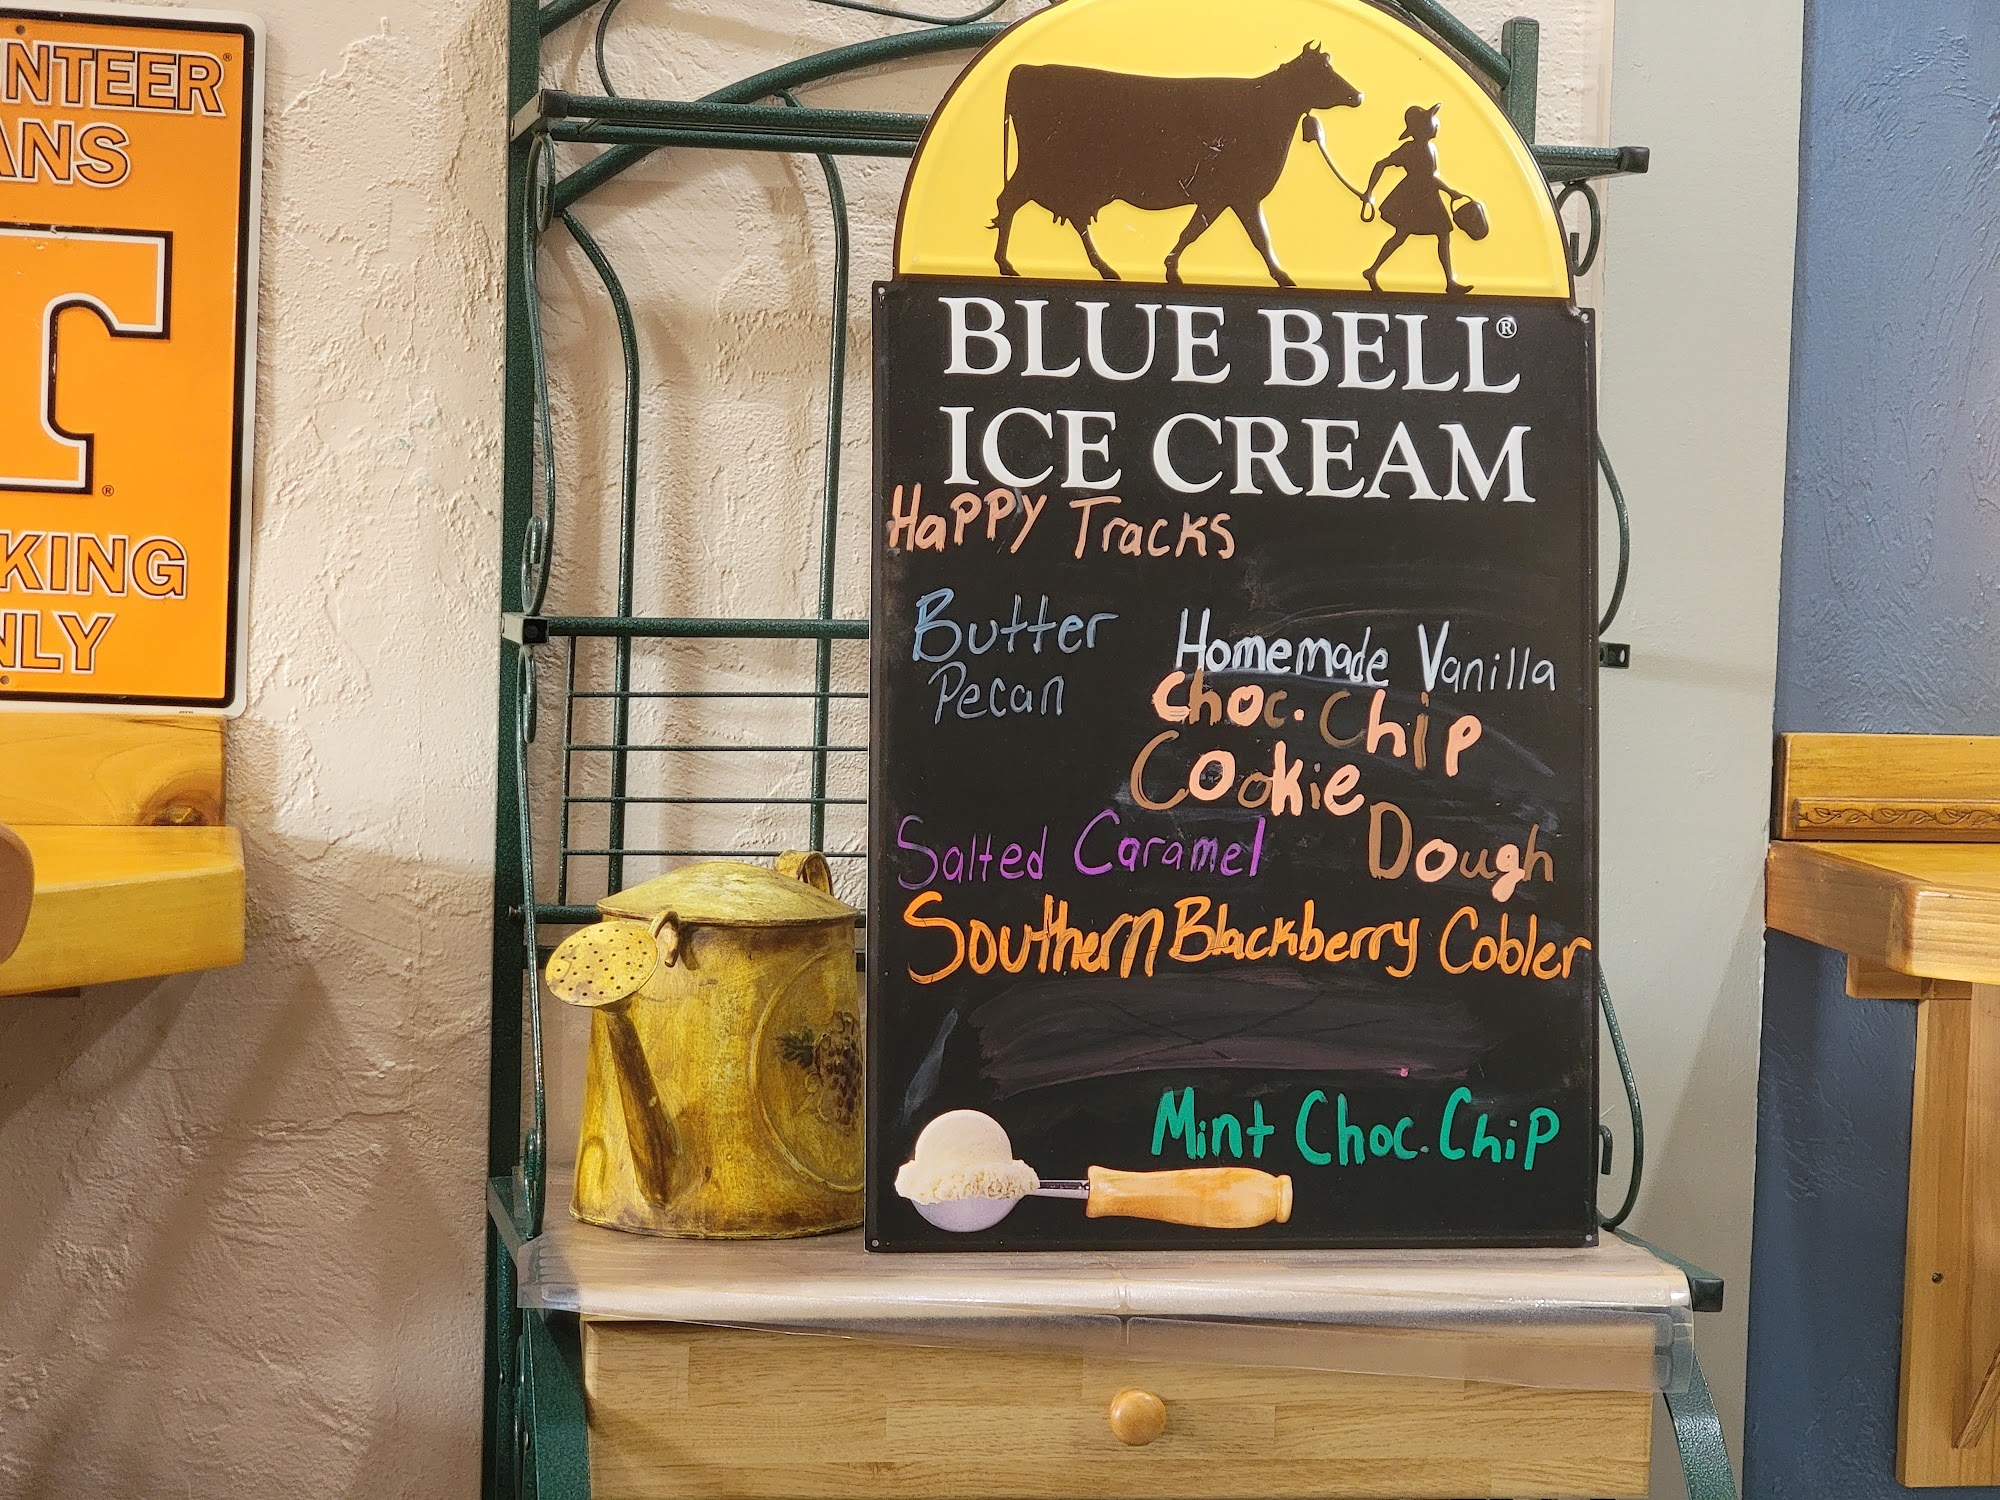 NTEER®
ANS
T®
KING
NLY
BLUE BELL®
ICE CREAM
Happy Tracks
Butter
Pecan
Homemade Vanilla
Choc. Chip
Cookie
Dough
Salted Caramel
Southern Blackberry Cobler
Mint Choc. Chip